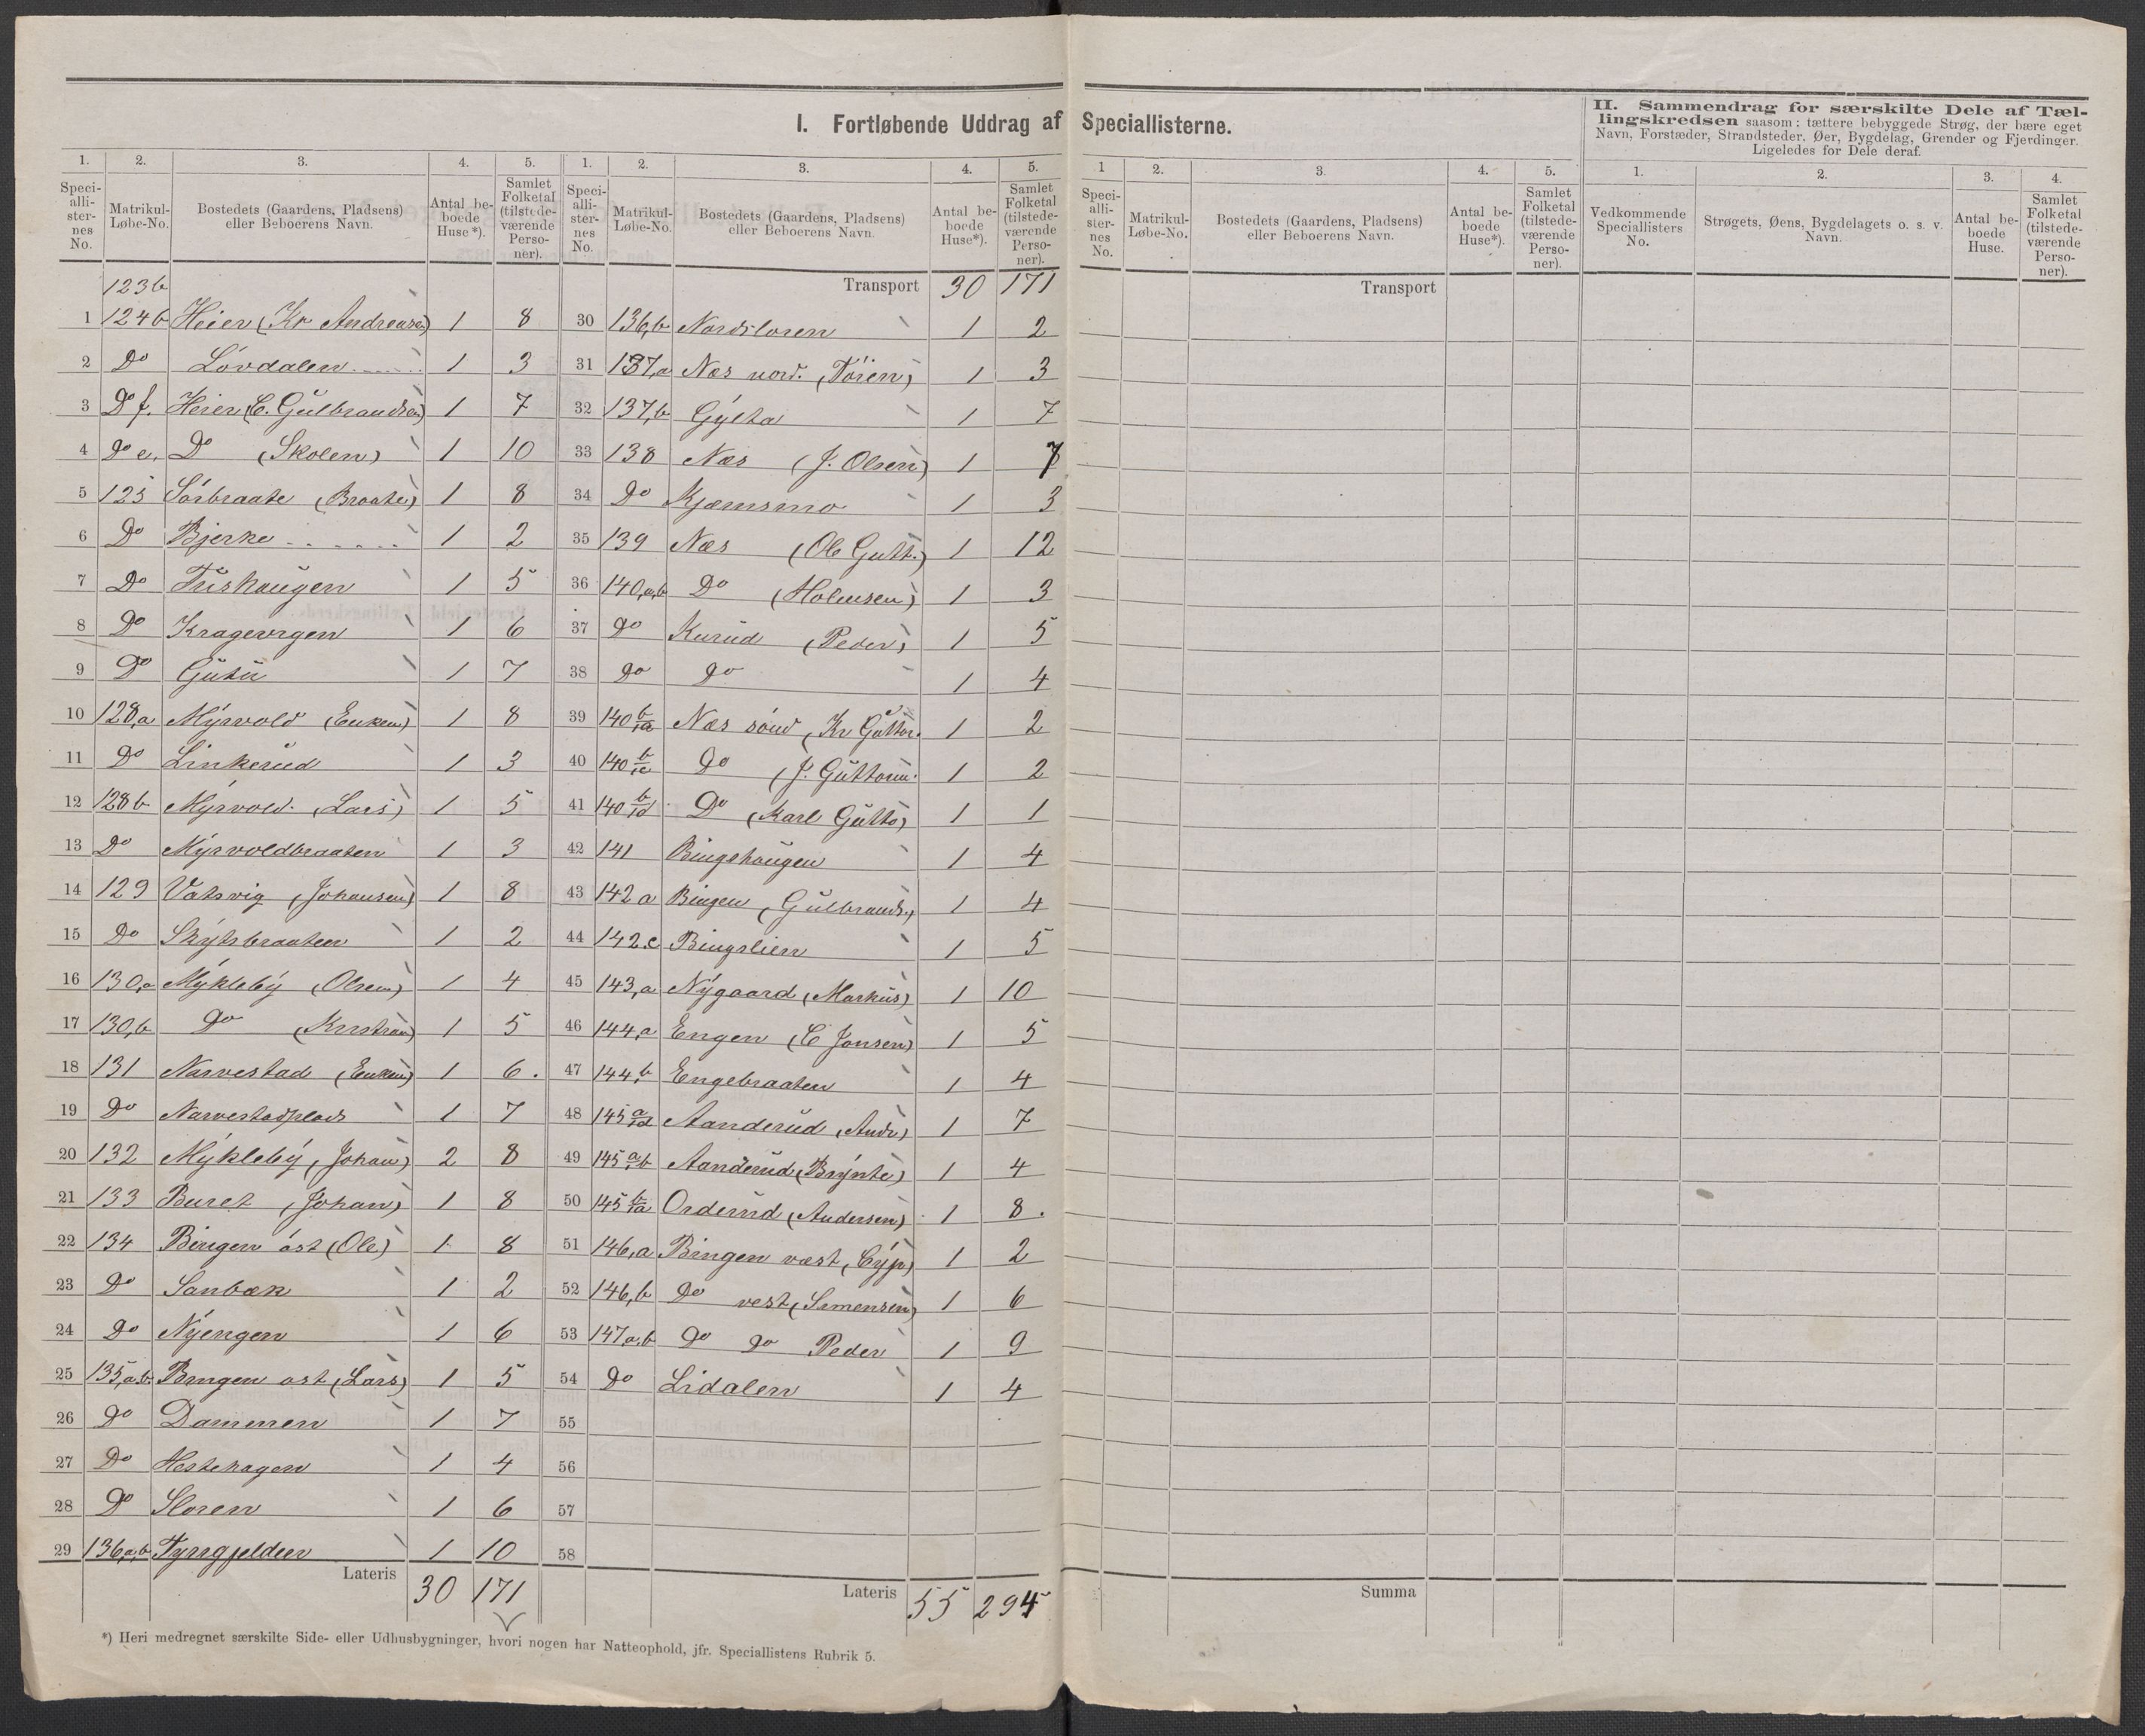 I. Fortløbende Uddrag af Speciallisterne.
II. Sammendrag for særskilte Dele af Tæl-
lingskredsen saasom: tættere bebyggede Strøg, der bære eget
Navn, Forstæder, Strandsteder, Øer, Bygdelag, Grender og Fjerdinger.
Ligeledes for Dele deraf.
1. 2. 3. 4. 5. 1. 2. 3. 4. 5. 1 2. 3. 4. 5. 1. 2. 3. 4.
Speci-alli-ster-nes No. Matrikul-Løbe-No. Bostedets (Gaardens, Pladsens) eller Beboerens Navn. Antal be-boede Huse*). Samlet Folketal (tilstede-værende Perso-ner).
Speci-alli-ster-nes No. Matrikul-Løbe-No. Bostedets (Gaardens, Pladsens) eller Beboerens Navn. Antal be-boede Huse*). Samlet Folketal (tilstede-værende Perso-ner).
Speci-alli-ster-nes No. Matrikul-Løbe-No. Bostedets (Gaardens, Pladsens) eller Beboerens Navn. Antal be-boede Huse*). Samlet Folketal (tilstede-værende Perso-ner).
Vedkommende Speciallisters No. Strøgets, Øens, Bygdelagets o. s. v. Navn. Antal be-boede Huse. Samlet Folketal (tilstede-værende Perso-ner).
123b
1 124b Heier (Kr Andreasen) 1 8
2 Do Lövdalen 1 3
3 Do f. Heier (C. Gulbrandsen) 1 7
4 Do e. Do (Skolen) 1 10
5 125 Sörbraate (Braate) 1 8
6 Do Bjerke 1 2
7 Do Friskaugen 1 5
8 Do Kragevrgen 1 6
9 Do Gutu 1 7
10 128,a Myrvold (Enken) 1 8
11 Do Linkerud 1 3
12 128b Myrvold (Lars) 1 5
13 Do Myrvoldbraaten 1 3
14 129 Vatsvig (Johansen) 1 8
15 Do Skytsbraaten 1 2
16 130,a Mykleby (Olsen) 1 4
17 130,b Do (Kristian) 1 5
18 131 Narvestad (Enken) 1 6.
19 Do Narvestadplads 1 7
20 132 Mykleby (Johan) 2 8
21 133 Buret (Johan) 1 8
22 134 Bingen öst (Ole) 1 8
23 Do Sanbæk 1 2
24 Do Nyengen 1 6
25 135,a.b. Bingen öst (Lars) 1 5
26 Do Dammen 1 7
27 Do Hestehagen 1 4
28 Do Sloren 1 6
29 136,a,b Tyrigjelden 1 10
Lateris 30 171
Transport 30 171
30 136,b Nordsloren 1 2
31 137,a Næs nord. (Tören) 1 3
32 137,b Gylta 1 7
33 138 Næs (J. Olsen) 1 7
34 Do Kjæmsmo 1 3
35 139 Næs (Ole Gutt.) 1 12
36 140,a,b Do (Holmsen) 1 3
37 Do Kurud (Peder) 1 5
38 Do Do 1 4
39 140 b/1a Næs sönd (Kr Guttor. 1 2
40 140 b/1c Do (J. Guttorm. 1 2
41 140 b/1d Do (Karl Gutto) 1 1
42 141 Bingshaugen 1 4
43 142 a Bingen (Gulbrands.) 1 4
44 142.c Bingslien 1 5
45 143,a Nygaard (Markus) 1 10
46 144,a Engen (C Jonsen) 1 5
47 144,b Engebraaten 1 4
48 145 a/1a Aanderud (Andr) 1 7
49 145 a/1b Aanderud (Brynte) 1 4
50 145 b/1a Orderud (Andersen) 1 8.
51 146,a Bingen væst (Cyp) 1 2
52 146,b Do vest (Simensen) 1 6
53 147a.b Do Do Peder 1 9
54 Do Lidalen 1 4
55
56
57
58
Lateris 55 294
Transport
Summa
*) Heri medregnet særskilte Side- eller Udhusbygninger, hvori nogen har Natteophold, jfr. Speciallistens Rubrik 5.